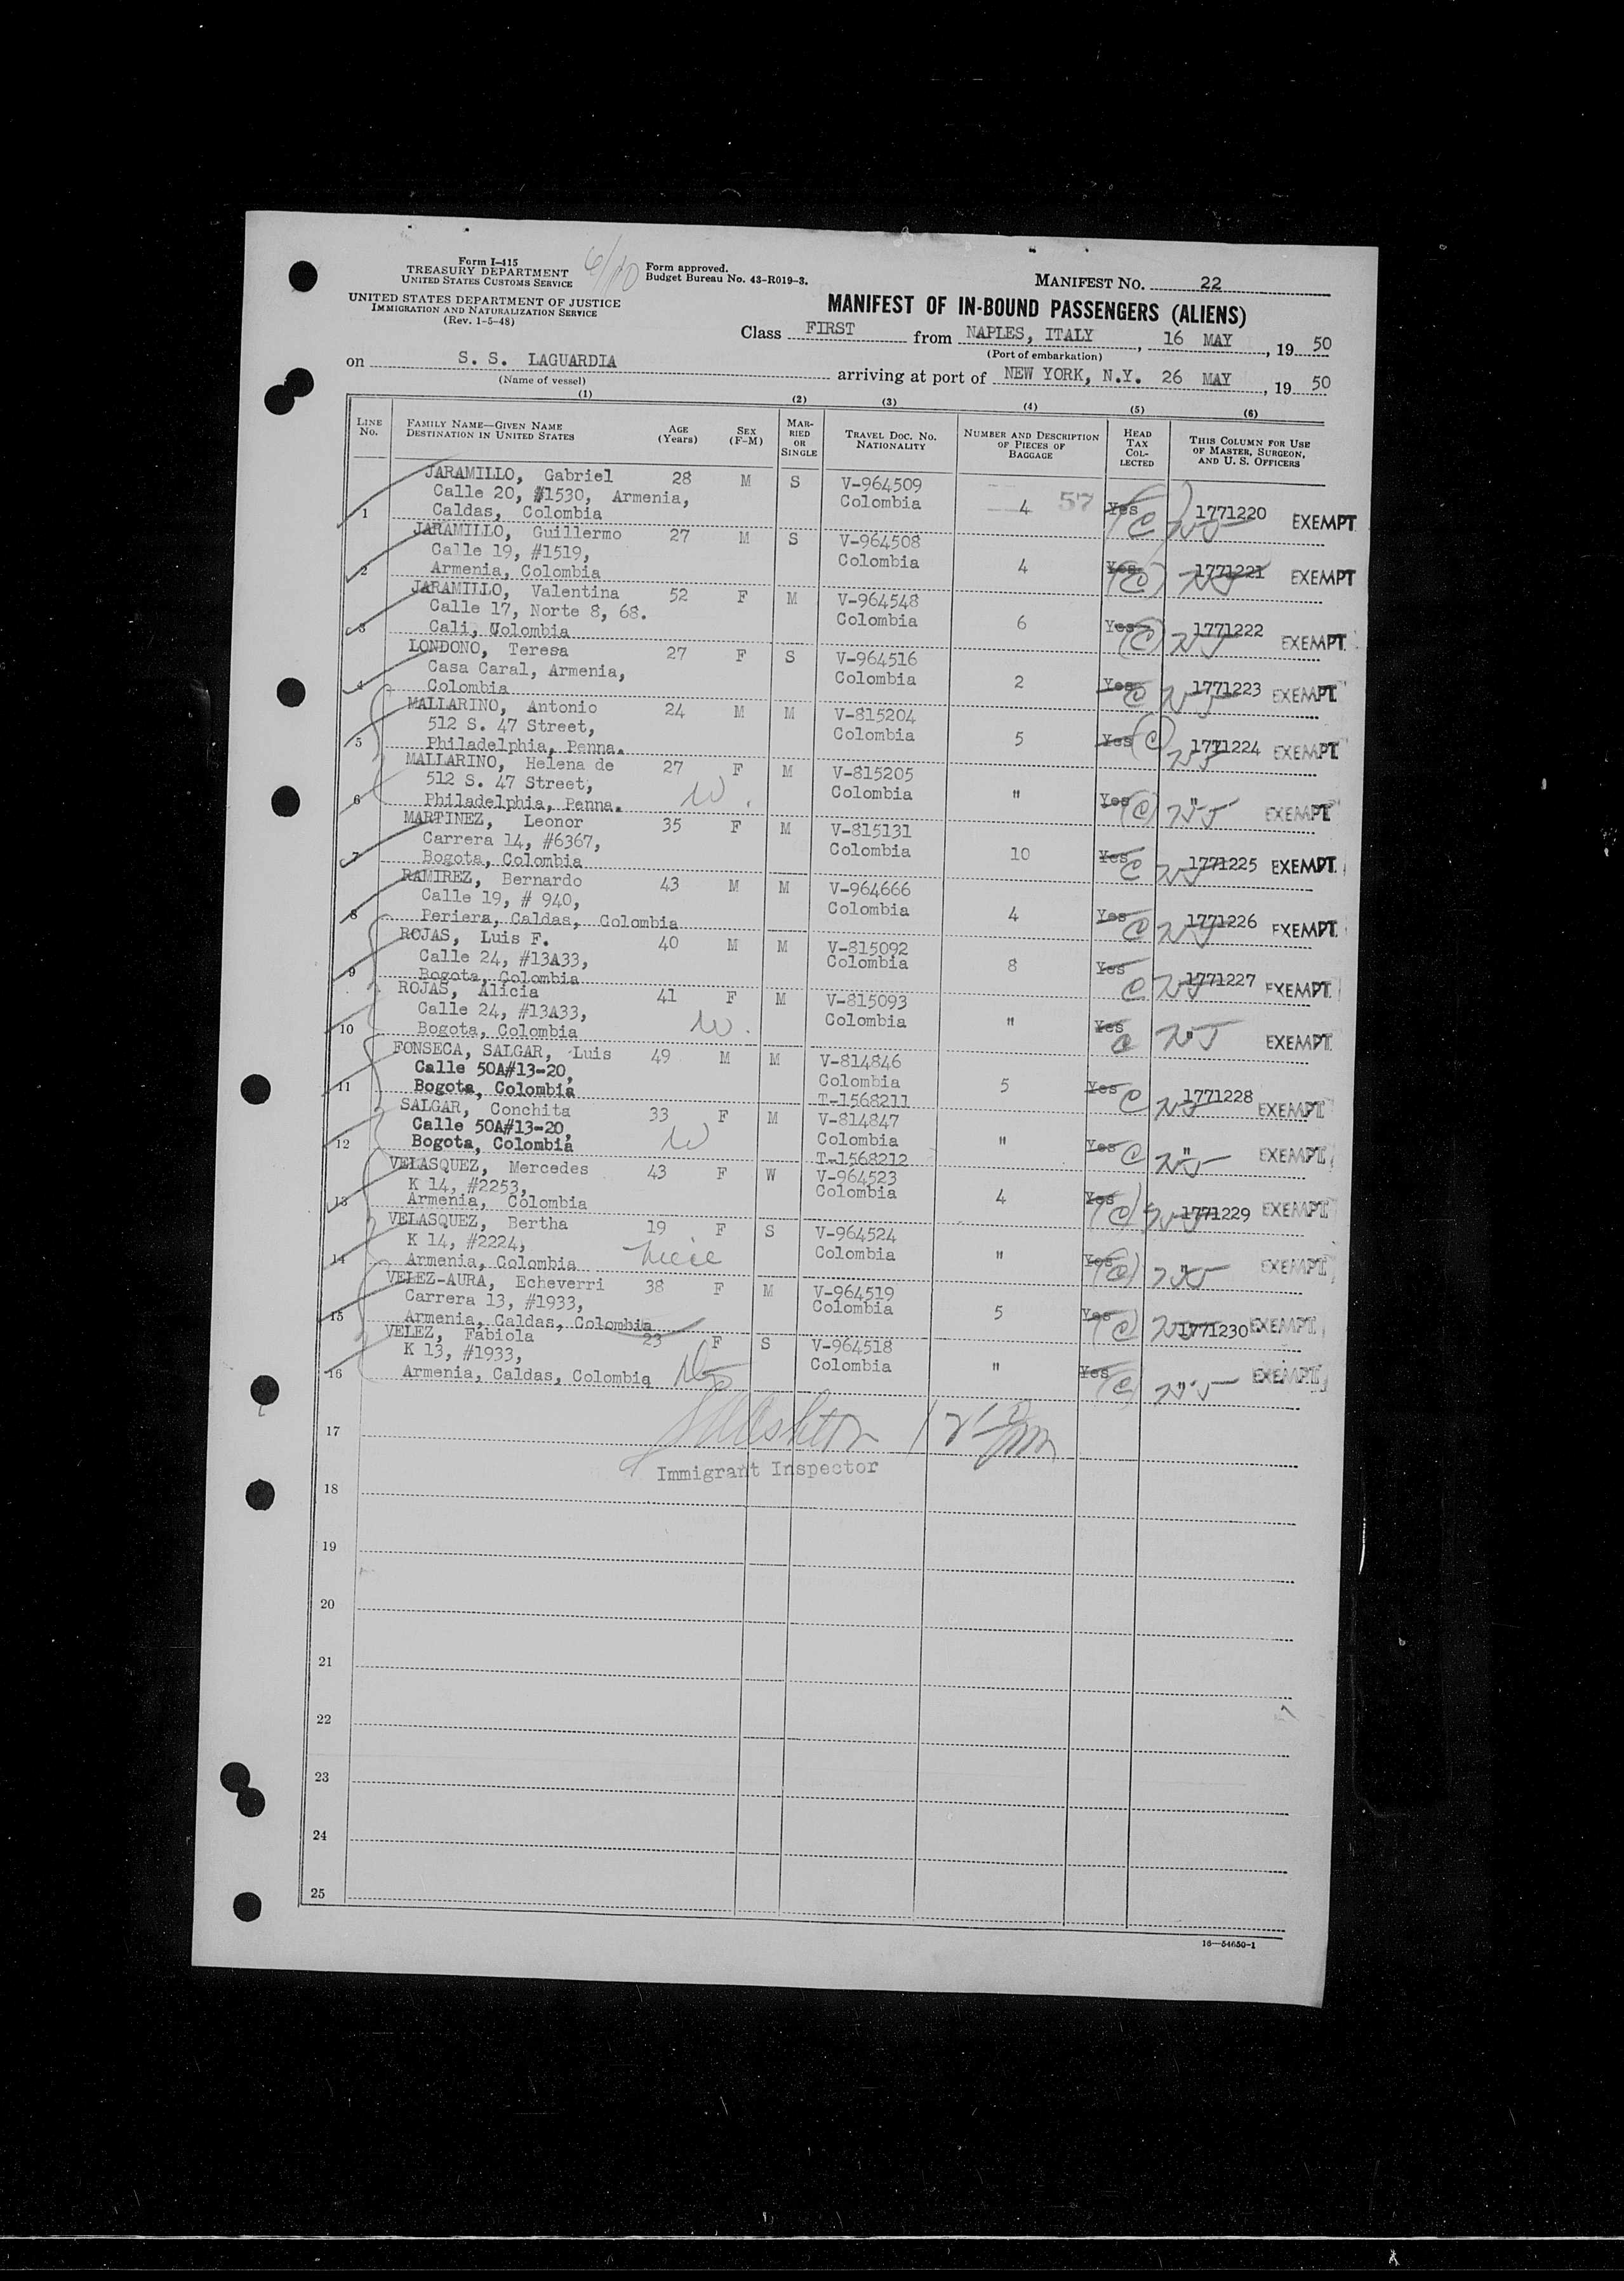 Form I-415
TREASURY DEPARTMENT
UNITED STATES CUSTOMS SERVICE
UNITED STATES DEPARTMENT OF JUSTICE
IMMIGRATION AND NATURALIZATION SERVICE
(Rev. 1-5-48)
Form approved.
Budget Bureau No. 43-R019-3.
MANIFEST NO. 22
MANIFEST OF IN-BOUND PASSENGERS (ALIENS)
Class FIRST from NAPLES, ITALY, 16 MAY, 19 50
(Port of embarkation)
on S. S. LAGUARDIA arriving at port of NEW YORK, N.Y. 26 MAY, 19 50
(Name of vessel)
(1) (2) (3) (4) (5) (6)
LINE NO. FAMILY NAME—GIVEN NAME DESTINATION IN UNITED STATES AGE (Years) SEX (F-M) MARRIED OR SINGLE TRAVEL DOC. NO. NATIONALITY NUMBER AND DESCRIPTION OF PIECES OF BAGGAGE HEAD TAX COLLECTED THIS COLUMN FOR USE OF MASTER, SURGEON, AND U. S. OFFICERS
JARAMILLO, Gabriel 28 M S V-964509
Calle 20, #1530, Armenia, Colombia 4 57 Yes C 1771220 EXEMPT
1 Caldas, Colombia
JARAMILLO, Guillermo 27 M S V-964508
Calle 19, #1519, Colombia 4 Yes C 1771221 EXEMPT
2 Armenia, Colombia
JARAMILLO, Valentina 52 F M V-964548
Calle 17, Norte 8, 68. Colombia 6 Yes C 1771222 EXEMPT
3 Cali, Colombia
LONDONO, Teresa 27 F S V-964516
Casa Caral, Armenia, Colombia 2 Yes C 1771223 EXEMPT
4 Colombia
MALLARINO, Antonio 24 M M V-815204
512 S. 47 Street, Colombia 5 Yes C 1771224 EXEMPT
5 Philadelphia, Penna.
MALLARINO, Helena de 27 F M V-815205
512 S. 47 Street, Colombia " Yes C " EXEMPT
6 Philadelphia, Penna. W.
MARTINEZ, Leonor 35 F M V-815131
Carrera 14, #6367, Colombia 10 Yes C 1771225 EXEMPT
7 Bogota, Colombia
RAMIREZ, Bernardo 43 M M V-964666
Calle 19, # 940, Colombia 4 Yes C 1771226 EXEMPT
8 Periera, Caldas, Colombia
ROJAS, Luis F. 40 M M V-815092
Calle 24, #13A33, Colombia 8 Yes C 1771227 EXEMPT
9 Bogota, Colombia
ROJAS, Alicia 41 F M V-815093
Calle 24, #13A33, Colombia " Yes C " EXEMPT
10 Bogota, Colombia W.
FONSECA, SALGAR, Luis 49 M M V-814846
Calle 50A#13-20, Colombia 5 Yes C 1771228 EXEMPT
11 Bogota, Colombia T-1568211
SALGAR, Conchita 33 F M V-814847
Calle 50A#13-20, Colombia " Yes C " EXEMPT
12 Bogota, Colombia W T-1568212
VELASQUEZ, Mercedes 43 F W V-964523
K 14, #2253, Colombia 4 Yes C 1771229 EXEMPT
13 Armenia, Colombia
VELASQUEZ, Bertha 19 F S V-964524
K 14, #2224, Colombia " Yes C " EXEMPT
14 Armenia, Colombia niece
VELEZ-AURA, Echeverri 38 F M V-964519
Carrera 13, #1933, Colombia 5 Yes C 1771230 EXEMPT
15 Armenia, Caldas, Colombia
VELEZ, Fabiola 23 F S V-964518
K 13, #1933, Colombia " Yes C " EXEMPT
16 Armenia, Caldas, Colombia
17
Immigrant Inspector
18
19
20
21
22
23
24
25
16—54650-1